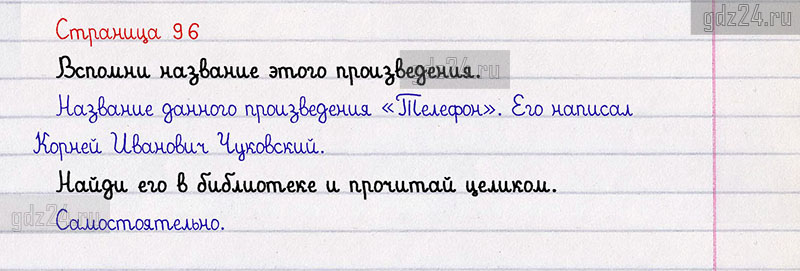 gdz24.ru
Страница 96
Вспомни название этого произведения.
gdz24.ru
Название данного произведения «Телефон». Его написал
Корней Иванович Чуковский.
Найди его в библиотеке и прочитай целиком.
gdz24.ru
Самостоятельно.